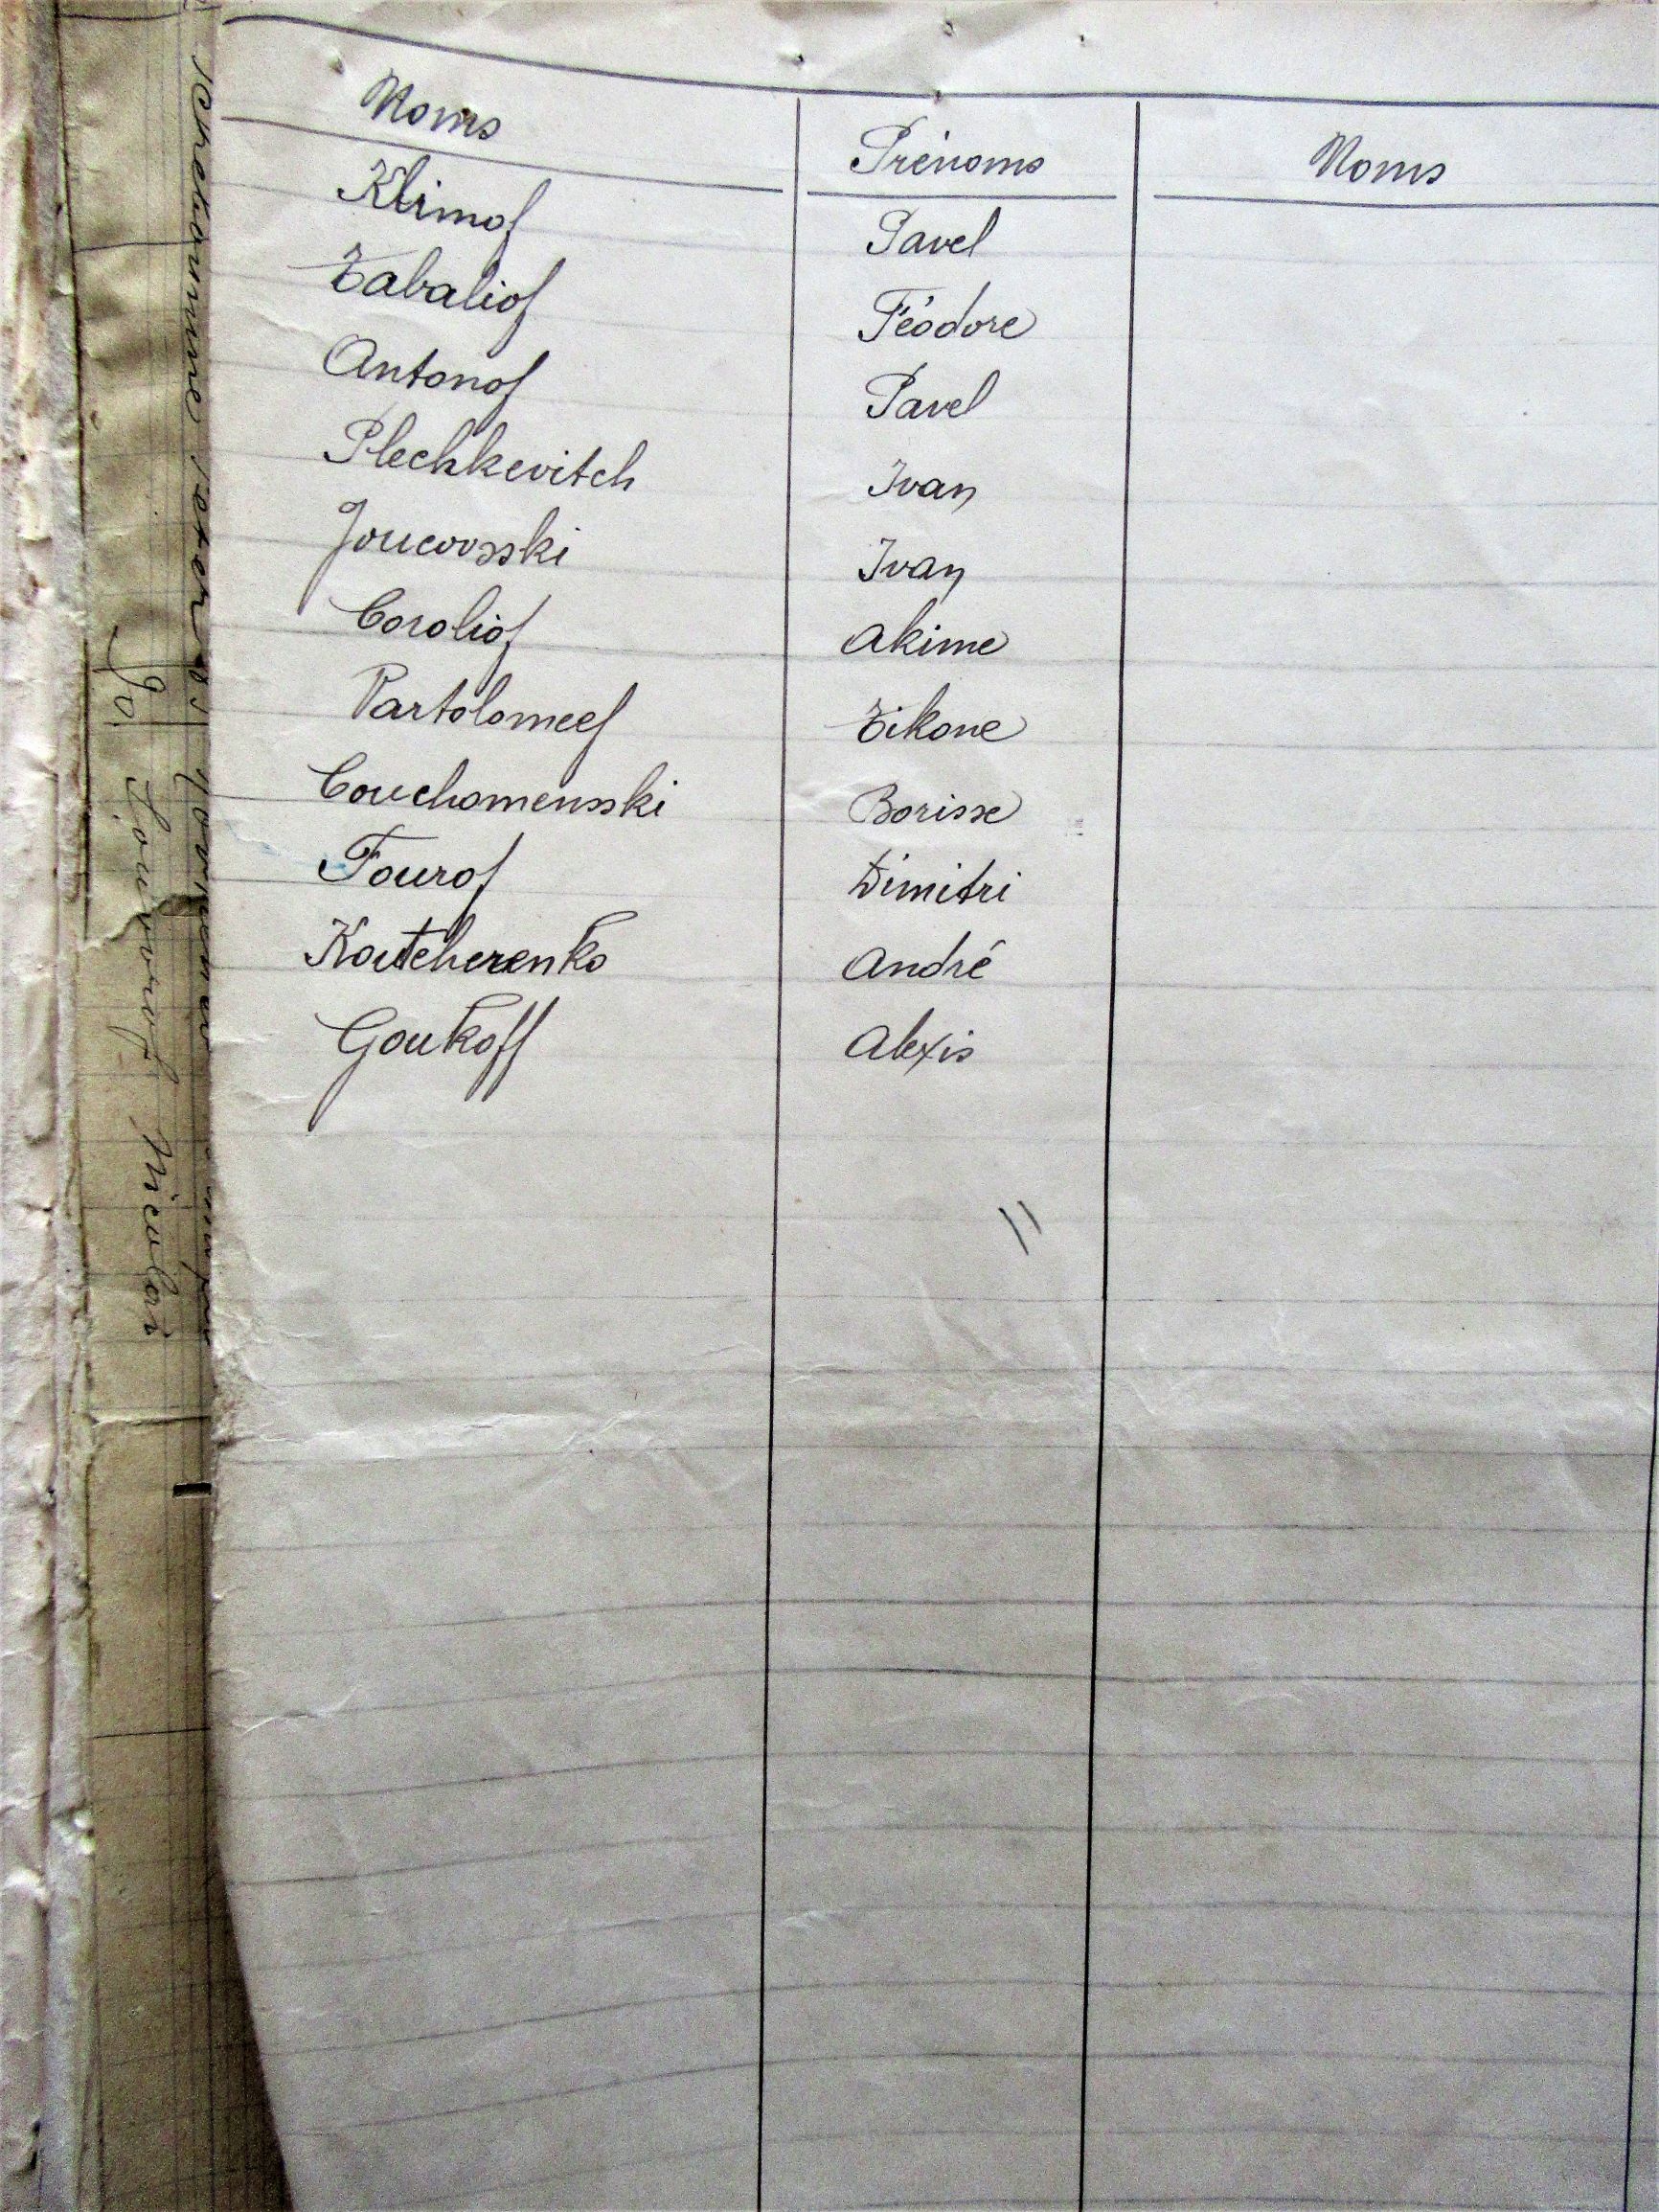 Noms Prénoms Noms
Klimof Pavel
Tabaliof Féodore
Antonof Pavel
Plechkevitch Ivan
Joucovsski Ivan
Coroliof Akime
Partolomeef Tikone
Couchomensski Borisse
Fourof Dimitri
Koutcherenko André
Goukoff Alexis
11
90.
Nicolai